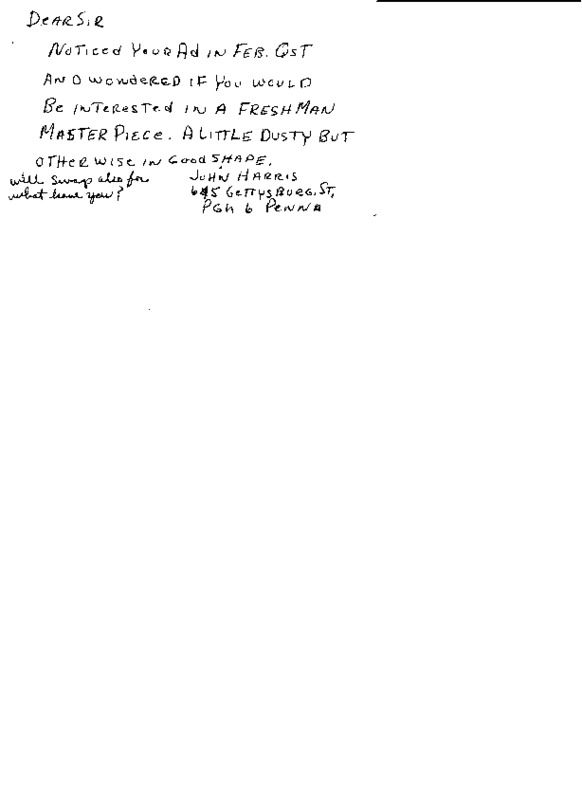 DEAR SIR
NOTICED YOUR AD IN FEB. QST
AND WONDERED IF YOU WOULD
BE INTERESTED IN A FRESHMAN
MASTER PIECE. A LITTLE DUSTY BUT
OTHER WISE IN GOOD SHAPE.
will swap also for
what have you?
JOHN HARRIS
645 GETTYSBURG. ST,
PGH 6 PENNA